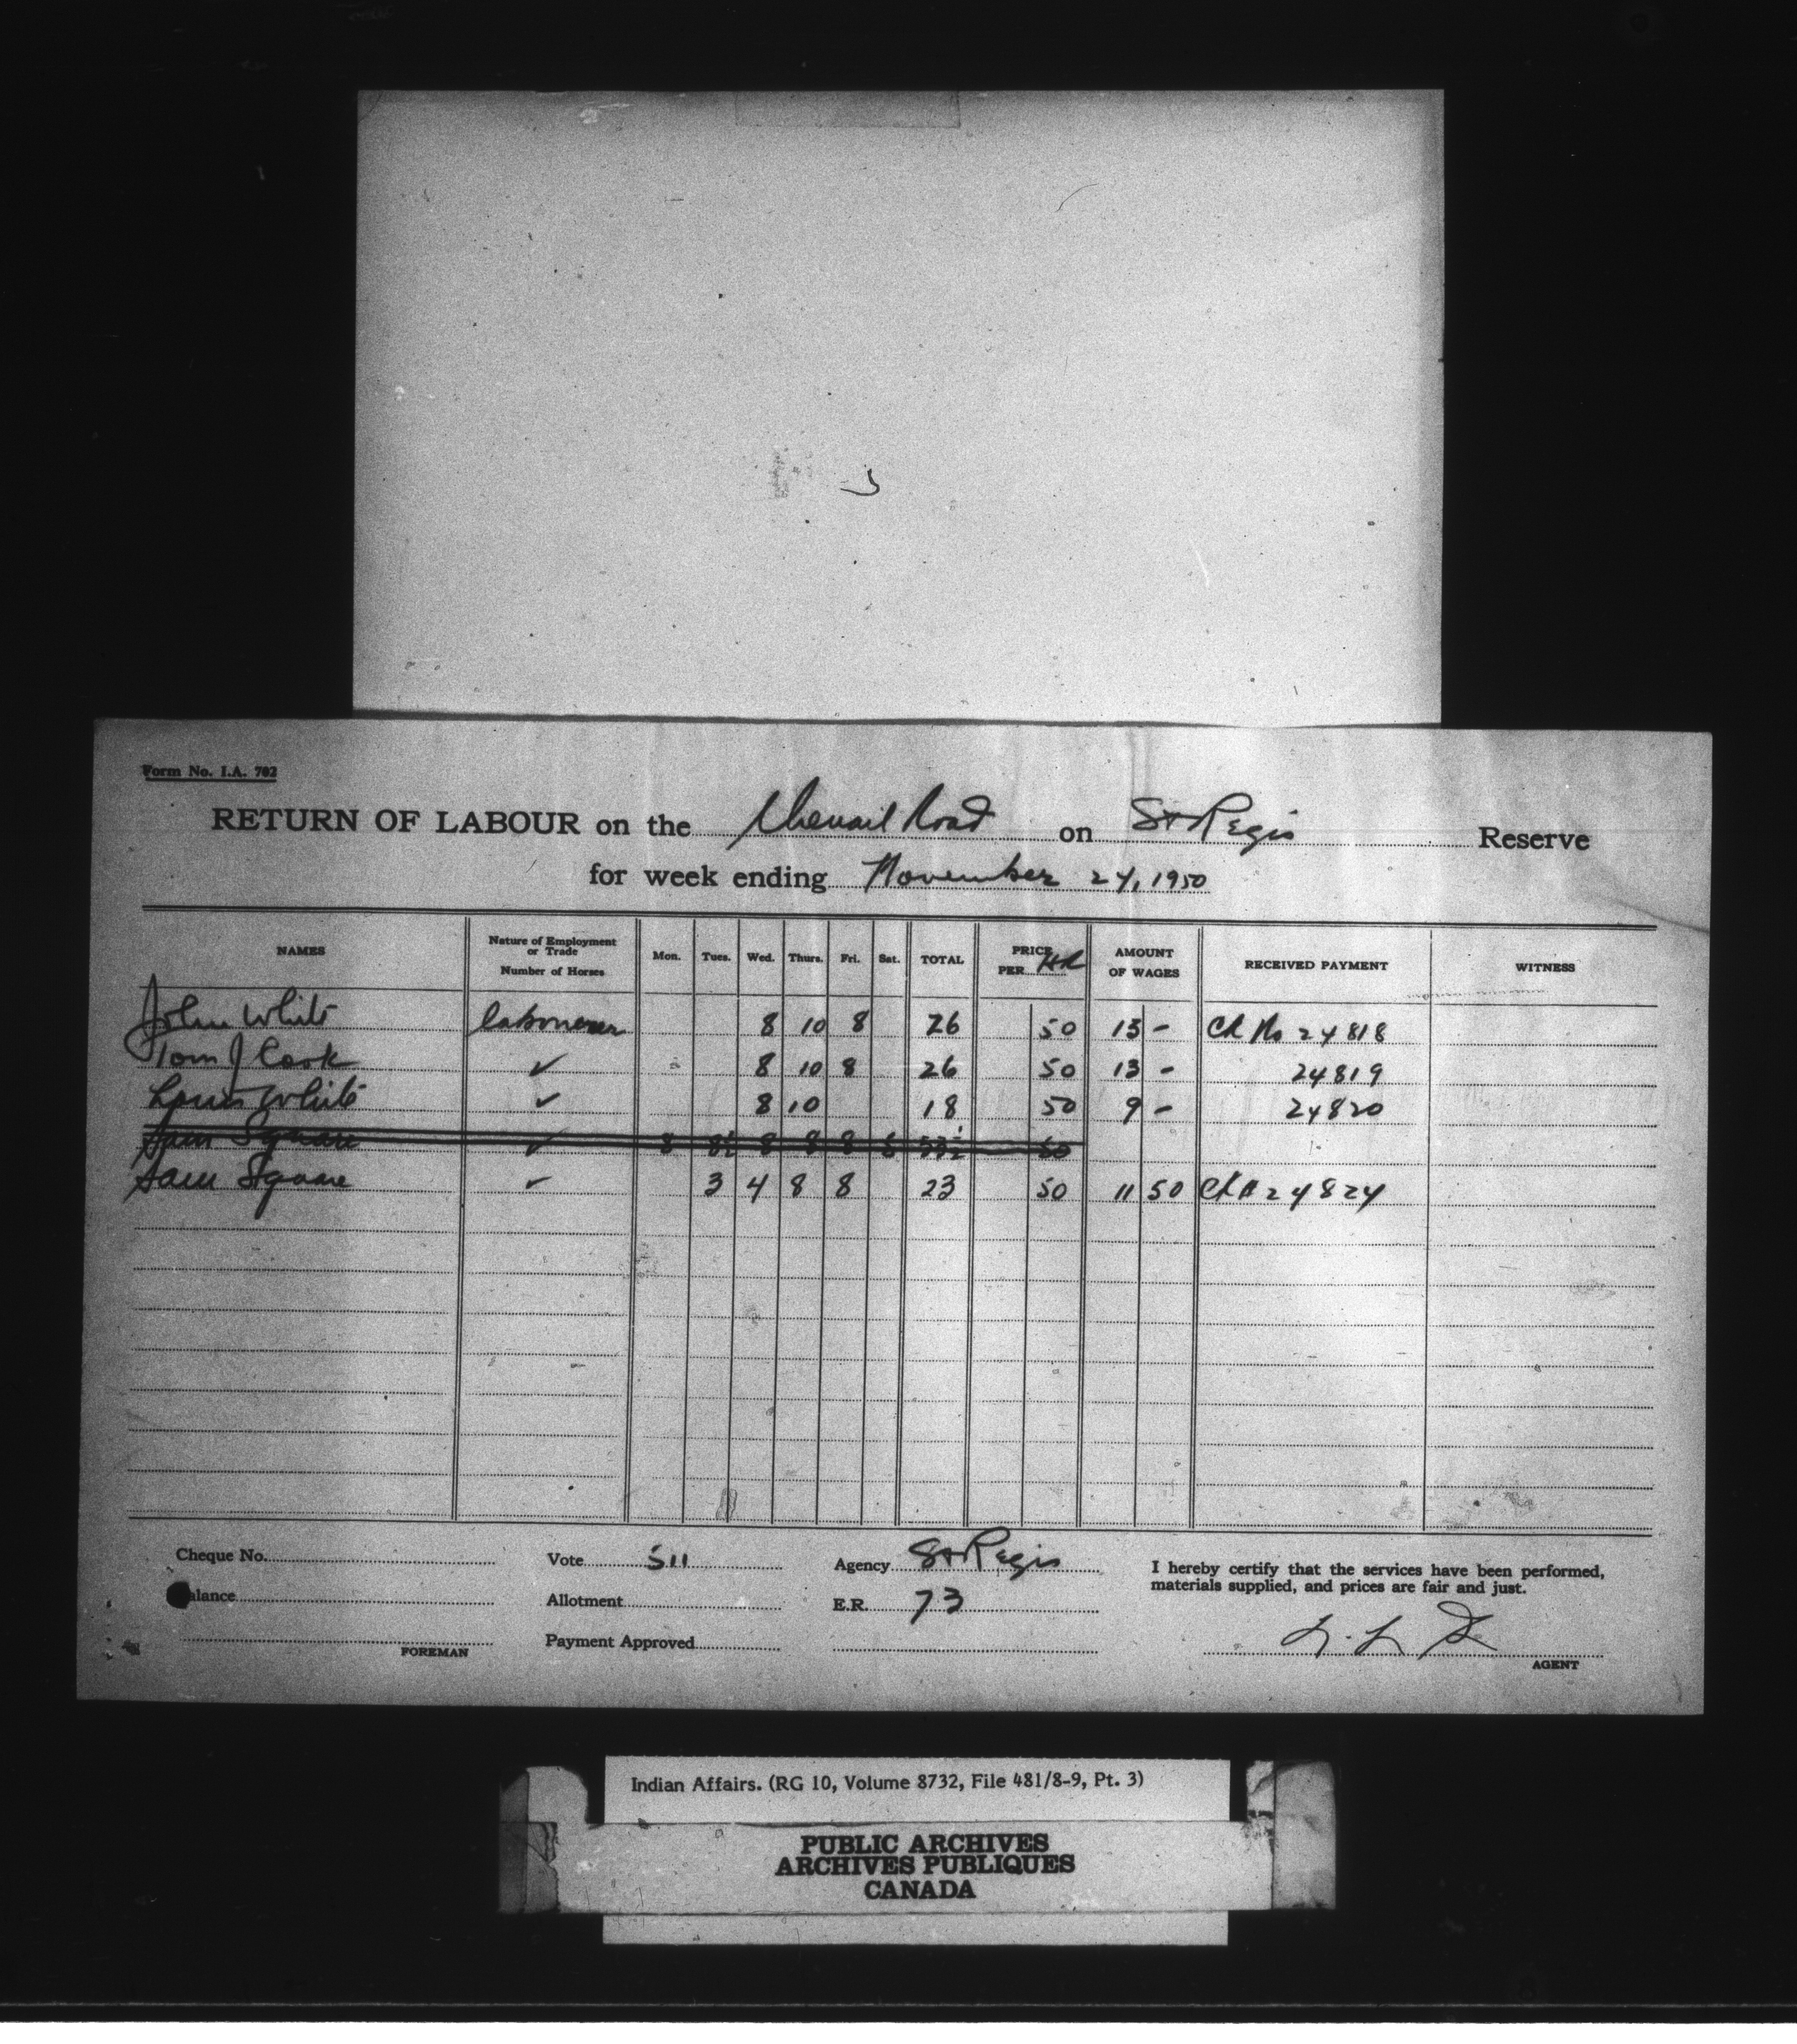 Form No. I.A. 702
RETURN OF LABOUR on the Chenail Road on St Regis Reserve
for week ending November 24, 1950
NAMES Nature of Employment or Trade Number of Horses Mon. Tues. Wed. Thurs. Fri. Sat. TOTAL PRICE PER HR AMOUNT OF WAGES RECEIVED PAYMENT WITNESS
John White labourer 8 10 8 26 50 13 - Ch No 24818
Tom J Cook ✓ 8 10 8 26 50 13 - 24819
Louis White ✓ 8 10 18 50 9 - 24820
Sam Square ✓ 8 8½ 8 8 8 50
Sam Square ✓ 3 4 8 8 23 50 11 50 Ch # 24824
Cheque No. Vote 511 Agency St Regis I hereby certify that the services have been performed,
materials supplied, and prices are fair and just.
alance Allotment E.R. 73
FOREMAN Payment Approved AGENT
Indian Affairs. (RG 10, Volume 8732, File 481/8-9, Pt. 3)
PUBLIC ARCHIVES
ARCHIVES PUBLIQUES
CANADA